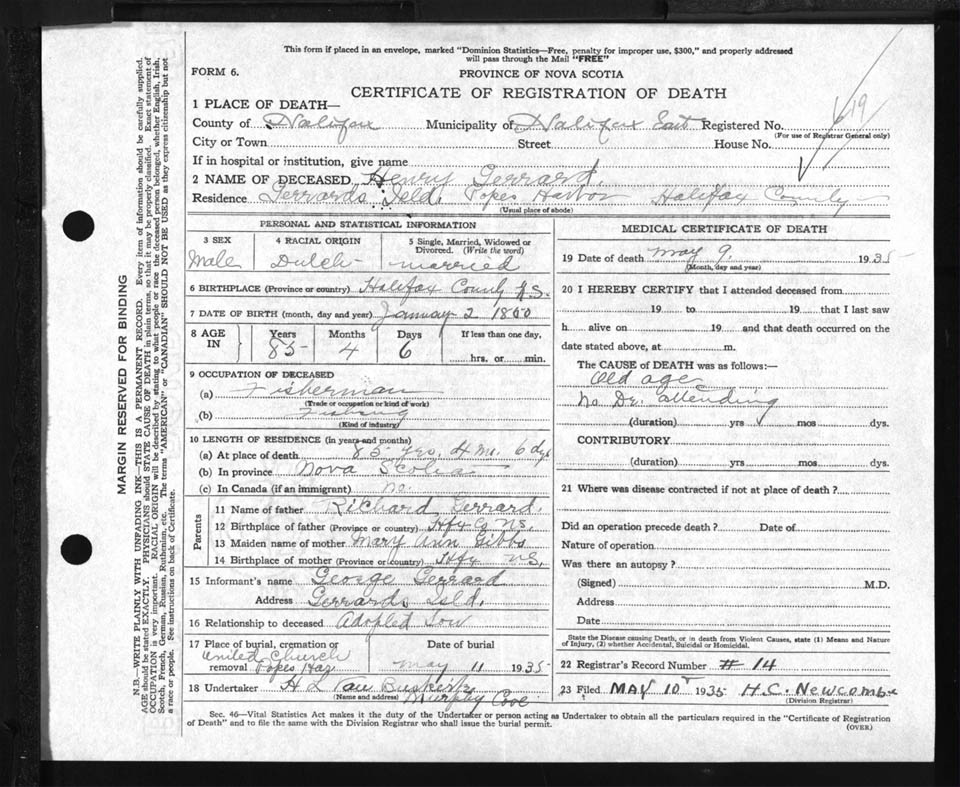 This form if placed in an envelope, marked "Dominion Statistics—Free, penalty for improper use, $300," and properly addressed
will pass through the Mail "FREE"
FORM 6.
PROVINCE OF NOVA SCOTIA
CERTIFICATE OF REGISTRATION OF DEATH
1 PLACE OF DEATH—
County of Halifax Municipality of Halifax East Registered No.
(For use of Registrar General only)
City or Town Street House No.
If in hospital or institution, give name
2 NAME OF DECEASED Henry Gerrard.
Residence Gerrards Isld. Popes Harbor Halifax County
(Usual place of abode)
PERSONAL AND STATISTICAL INFORMATION
3 SEX 4 RACIAL ORIGIN 5 Single, Married, Widowed or Divorced. (Write the word)
Male Dutch married
6 BIRTHPLACE (Province or country) Halifax County N.S.
7 DATE OF BIRTH (month, day and year) January 2 1850
8 AGE IN Years Months Days If less than one day,
85 4 6 hrs. or min.
9 OCCUPATION OF DECEASED
(a) Fisherman
(Trade or occupation or kind of work)
(b) Fishing
(Kind of industry)
10 LENGTH OF RESIDENCE (in years and months)
(a) At place of death 85 yrs. 4 Mo. 6 dys
(b) In province Nova Scotia
(c) In Canada (if an immigrant) no.
Parents
11 Name of father Richard Gerrard.
12 Birthplace of father (Province or country) Hfx Co NS.
13 Maiden name of mother Mary Ann Gibbs
14 Birthplace of mother (Province or country) Hfx NS.
15 Informant's name George Gerrard
Address Gerrards Isld.
16 Relationship to deceased Adopted Son
17 Place of burial, cremation or removal Date of burial
United Church
Popes Har. May 11 1935
18 Undertaker H L Van Buskirk
(Name and address) Murphy Cove
MEDICAL CERTIFICATE OF DEATH
19 Date of death May 9. 1935
(Month, day and year)
20 I HEREBY CERTIFY that I attended deceased from
19 to 19 that I last saw
h alive on 19 and that death occurred on the
date stated above, at m.
The CAUSE OF DEATH was as follows:—
Old age
No Dr. attending
(duration) yrs mos dys.
CONTRIBUTORY
(duration) yrs mos dys.
21 Where was disease contracted if not at place of death?
Did an operation precede death? Date of
Nature of operation
Was there an autopsy?
(Signed) M.D.
Address
Date
State the Disease causing Death, or in death from Violent Causes, state (1) Means and Nature
of Injury, (2) whether Accidental, Suicidal or Homicidal.
22 Registrar's Record Number # 14
23 Filed MAY 10 1935 H.C. Newcombe
(Division Registrar)
Sec. 46—Vital Statistics Act makes it the duty of the Undertaker or person acting as Undertaker to obtain all the particulars required in the "Certificate of Registration
of Death" and to file the same with the Division Registrar who shall issue the burial permit.
(OVER)
MARGIN RESERVED FOR BINDING
N.B.—WRITE PLAINLY WITH UNFADING INK—THIS IS A PERMANENT RECORD. Every item of information should be carefully supplied.
AGE should be stated EXACTLY. PHYSICIANS should STATE CAUSE OF DEATH in plain terms, so that it may be properly classified. Exact statement of
OCCUPATION is very important. RACIAL ORIGIN will be described by stating to what people or race the deceased person belonged, whether English, Irish,
Scotch, French, German, Russian, Ruthenian, etc. The terms "AMERICAN" or "CANADIAN" SHOULD NOT BE USED as they express citizenship but not
a race or people. See instructions on back of Certificate.